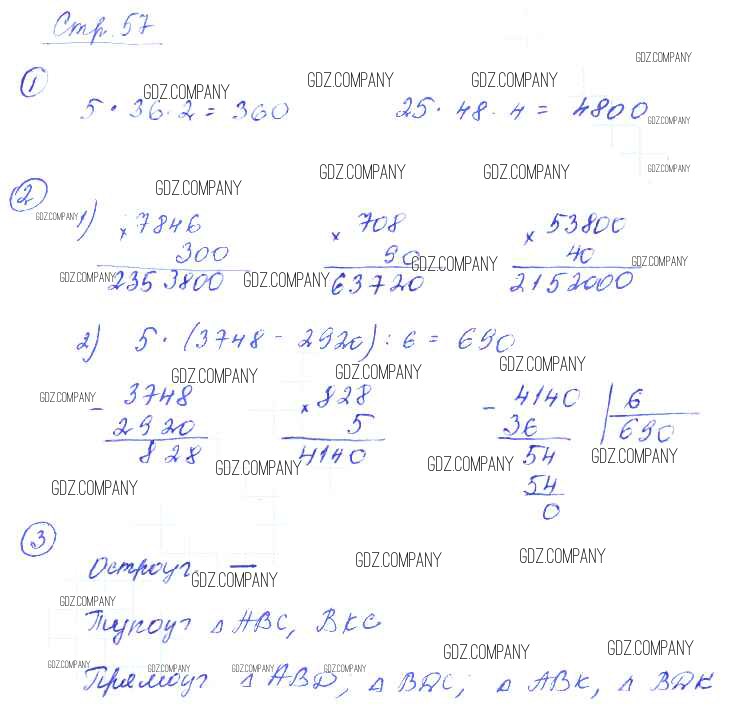 Стр. 57
GDZ.COMPANY
1
GDZ.COMPANY GDZ.COMPANY GDZ.COMPANY
5 · 36 · 2 = 360 25 · 48 · 4 = 4800
GDZ.COMPANY
GDZ.COMPANY GDZ.COMPANY GDZ.COMPANY
2
GDZ.COMPANY
GDZ.COMPANY
1) × 7846 × 708 × 53800
300 90 40
GDZ.COMPANY GDZ.COMPANY
GDZ.COMPANY GDZ.COMPANY
2353800 63720 2152000
2) 5 · (3748 - 2920) : 6 = 690
GDZ.COMPANY GDZ.COMPANY GDZ.COMPANY
GDZ.COMPANY
- 3748 × 828 - 4140 6
2920 5 36 690
828 4140 54
GDZ.COMPANY GDZ.COMPANY GDZ.COMPANY
GDZ.COMPANY
54
0
3
GDZ.COMPANY GDZ.COMPANY
Остроуг. —
GDZ.COMPANY
GDZ.COMPANY
Тупоуг △ ABC, BKC
GDZ.COMPANY GDZ.COMPANY
GDZ.COMPANY GDZ.COMPANY GDZ.COMPANY GDZ.COMPANY
Прямоуг △ ABD, △ BDC, △ ABK, △ BDK